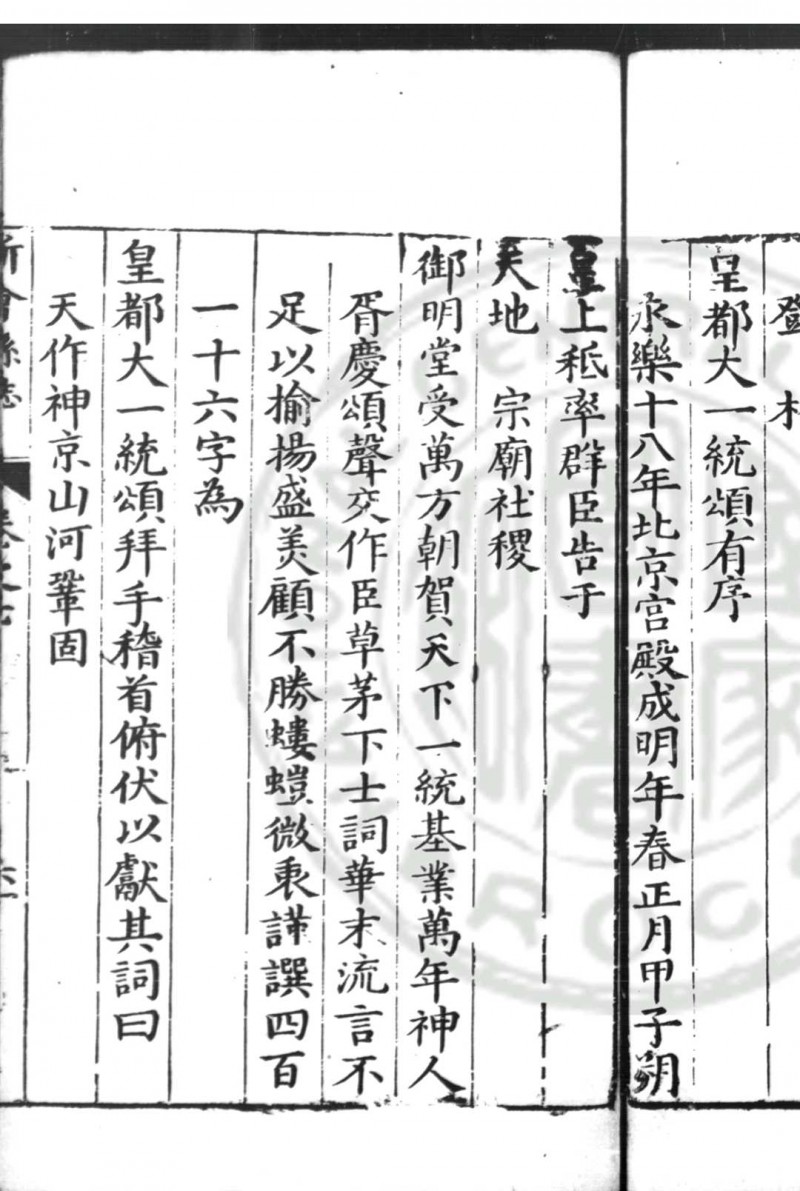 登
皇都大一統頌有序
永樂十八年北京宮殿成明年春正月甲子朔
皇上秪率群臣告于
天地　宗廟社稷
御明堂受萬方朝賀天下一統基業萬年神人
胥慶頌聲交作臣草茅下士詞華末流言不
足以揄揚盛美顧不勝螻螘微衷謹譔四百
一十六字為
皇都大一統頌拜手稽首俯伏以獻其詞曰
天作神京山河鞏固
新會縣志
卷之七